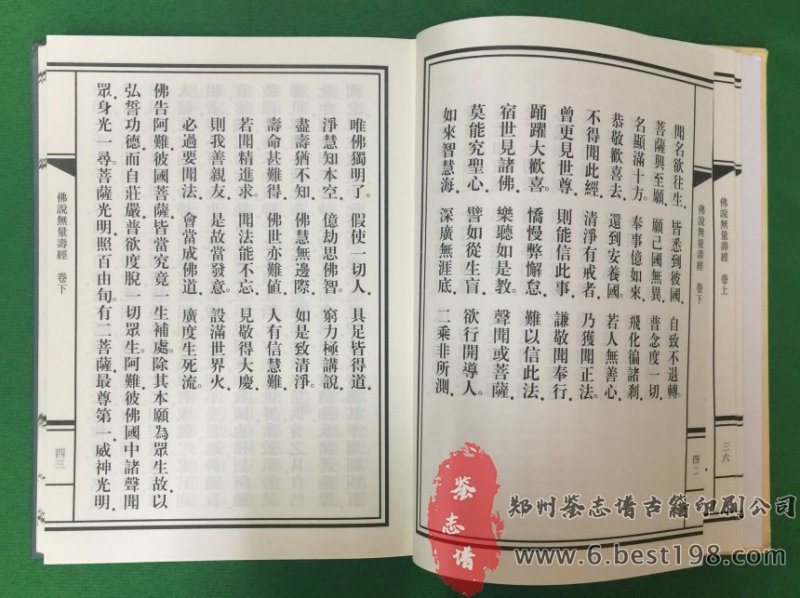 佛說無量壽經 卷上
三六
佛說無量壽經 卷下
四二
聞名欲往生．皆悉到彼國．自致不退轉。
菩薩興至願．願己國無異．普念度一切．
名顯滿十方。奉事億如來．飛化徧諸剎．
恭敬歡喜去．還到安養國。若人無善心．
不得聞此經．清淨有戒者．乃獲聞正法。
曾更見世尊．則能信此事．謙敬聞奉行．
踊躍大歡喜。憍慢弊懈怠．難以信此法．
宿世見諸佛．樂聽如是教。聲聞或菩薩．
莫能究聖心．譬如從生盲．欲行開導人。
如來智慧海．深廣無涯底．二乘非所測．
唯佛獨明了。假使一切人．具足皆得道．
淨慧知本空．億劫思佛智。窮力極講說．
盡壽猶不知．佛慧無邊際．如是致清淨。
壽命甚難得．佛世亦難值．人有信慧難．
若聞精進求。聞法能不忘．見敬得大慶．
則我善親友．是故當發意。設滿世界火．
必過要聞法．會當成佛道．廣度生死流。
佛告阿難彼國菩薩皆當究竟一生補處．除其本願為眾生故．以
弘誓功德而自莊嚴．普欲度脫一切眾生。阿難．彼佛國中諸聲聞
眾身光一尋。菩薩光明．照百由旬。有二菩薩最尊第一．威神光明．
佛說無量壽經 卷下
四三
鉴志谱
郑州鉴志谱古籍印刷公司
www.6.best198.com